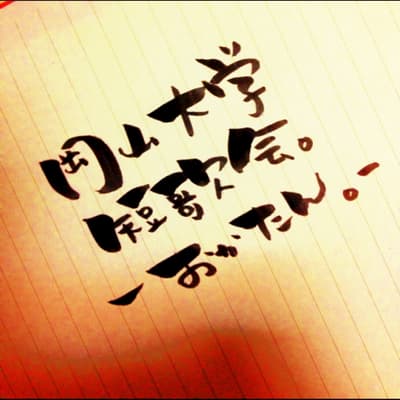 岡山大学
短歌会。
-おかたん。-